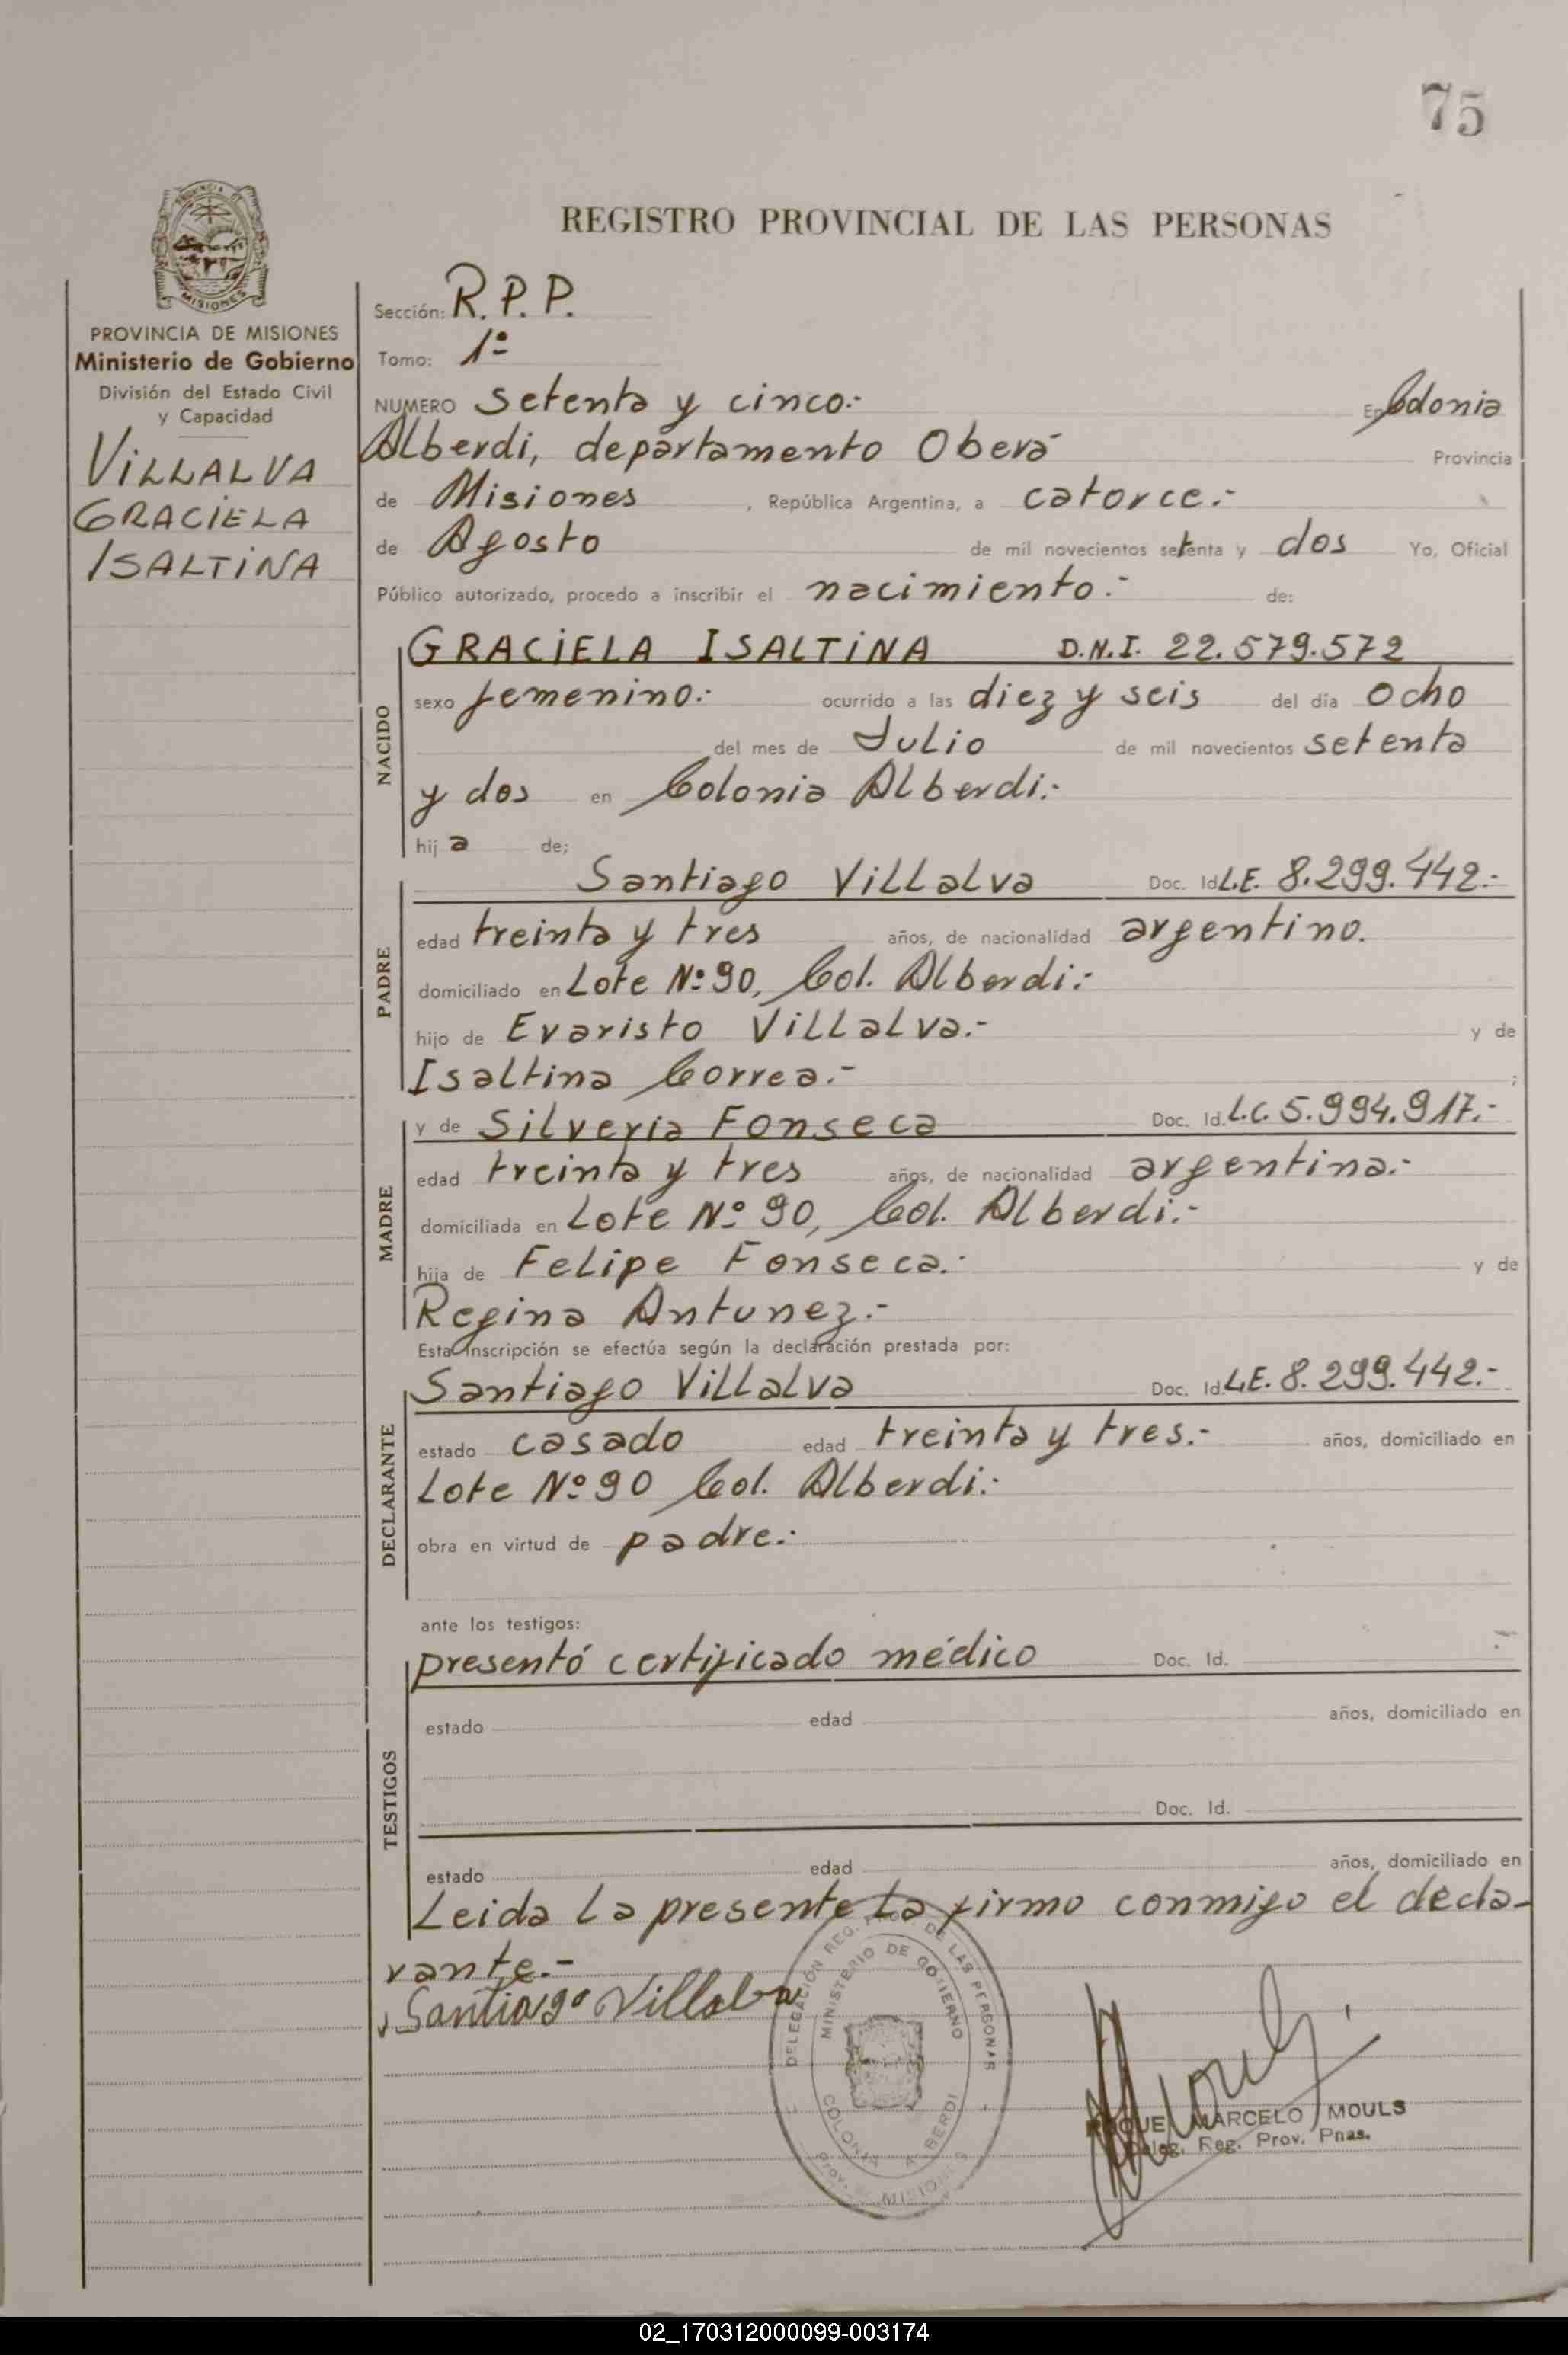 75
REGISTRO PROVINCIAL DE LAS PERSONAS
MISIONES
PROVINCIA DE MISIONES
Ministerio de Gobierno
División del Estado Civil
y Capacidad
VILLALVA
GRACIELA
ISALTINA
Sección: R.P.P.
Tomo: 1º
NUMERO setenta y cinco.- En Colonia
Alberdi, departamento Oberá Provincia
de Misiones, República Argentina, a catorce.-
de Agosto de mil novecientos setenta y dos Yo, Oficial
Público autorizado, procedo a inscribir el nacimiento.- de:
NACIDO
GRACIELA ISALTINA D.N.I. 22.579.572
sexo femenino.- ocurrido a las diez y seis del día ocho
del mes de Julio de mil novecientos setenta
y dos en Colonia Alberdi.-
hija de;
PADRE
Santiago Villalva Doc. Id. L.E. 8.299.442.-
edad treinta y tres años, de nacionalidad argentino.
domiciliado en Lote Nº 90, Col. Alberdi.-
hijo de Evaristo Villalva.- y de
Isaltina Correa.- ;
MADRE
y de Silveria Fonseca Doc. Id. L.C. 5.994.917.-
edad treinta y tres años, de nacionalidad argentina.-
domiciliada en Lote Nº 90, Col. Alberdi.-
hija de Felipe Fonseca.- y de
Regina Antunez.-
Esta inscripción se efectúa según la declaración prestada por:
DECLARANTE
Santiago Villalva Doc. Id. L.E. 8.299.442.-
estado casado edad treinta y tres.- años, domiciliado en
Lote Nº 90 Col. Alberdi.-
obra en virtud de padre.-
ante los testigos:
TESTIGOS
presentó certificado médico Doc. Id.
estado edad años, domiciliado en
Doc. Id.
estado edad años, domiciliado en
Leida la presente la firmo conmigo el decla-
rante.-
Santiago Villalba
DELEGACIÓN REG. PROV. DE LAS PERSONAS
MINISTERIO DE GOBIERNO
COLONIA ALBERDI
Prov. de MISIONES
ROQUE MARCELO MOULS
Deleg. Reg. Prov. Pnas.
02_170312000099-003174